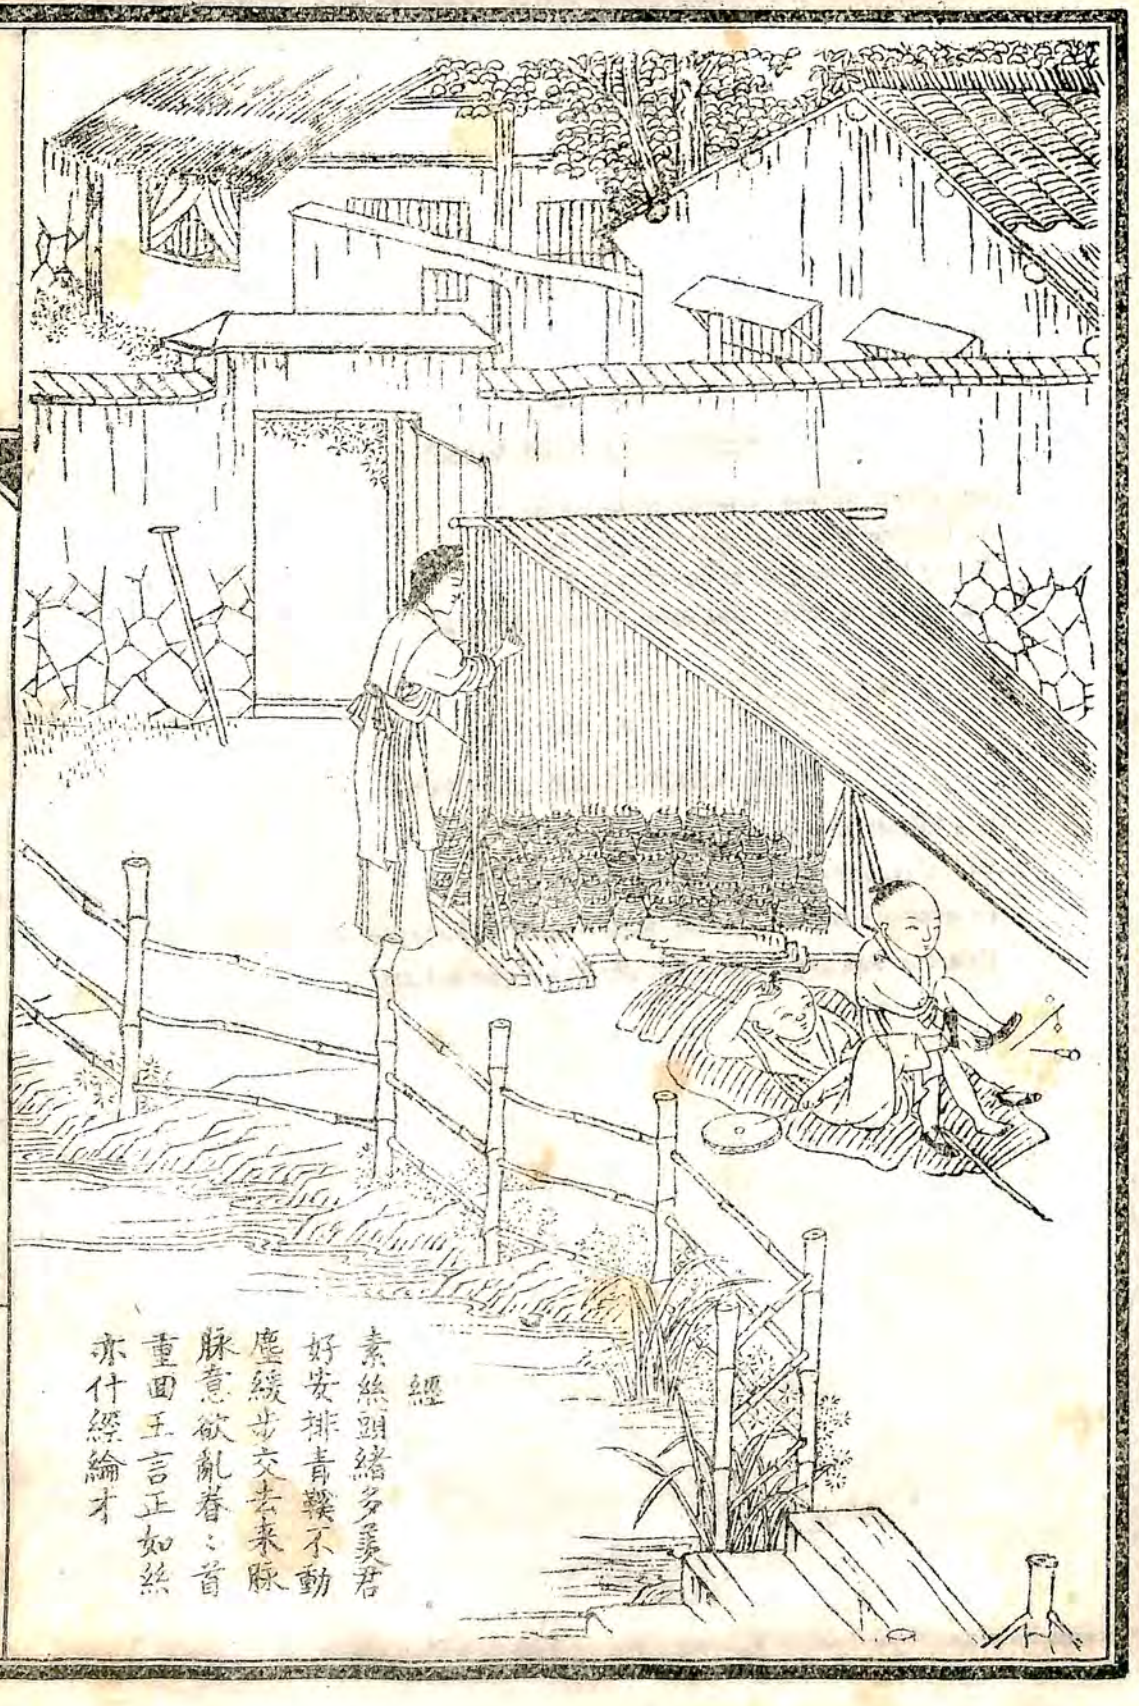 經
素絲頭緒多羨君
好安排青鞵不動
塵緩步交去來脉
脉意欲亂眷〻首
重回王言正如絲
亦付經綸才